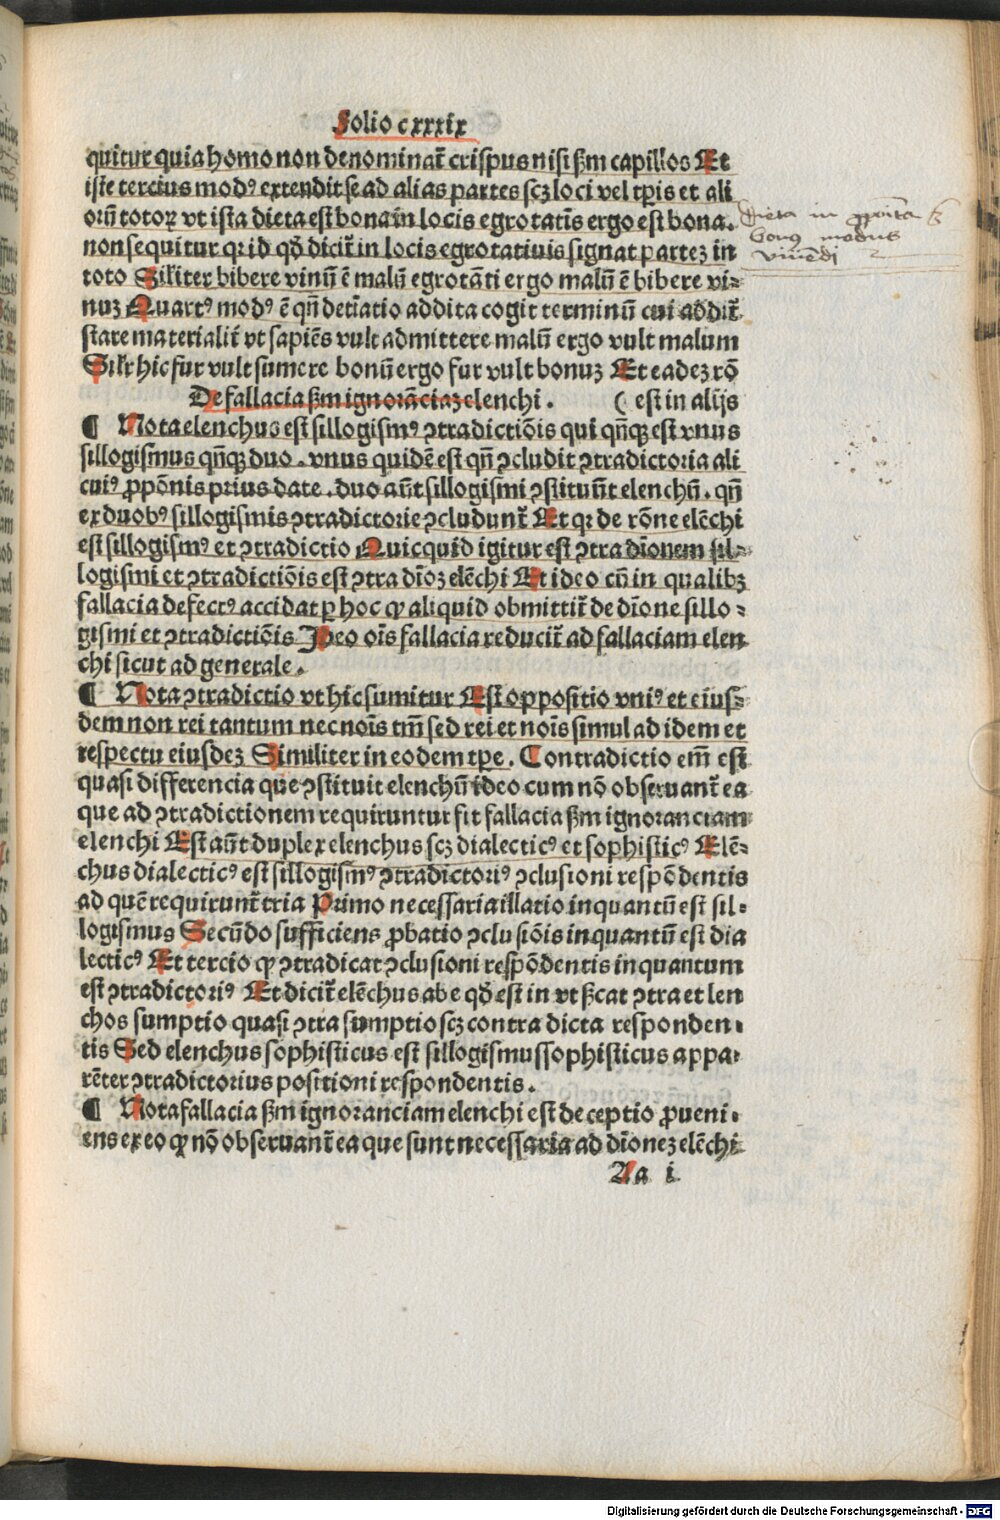 Folio cxxxix
quitur quia homo non denominat̃ crispus nisi ẜm capillos Et
iste tercius modꝰ extendit se ad alias partes scꝫ loci vel tꝑis et ali
oꝝ totoꝝ vt ista dieta est bona in locis egrotatīs ergo est bona.
non sequitur qꝛ id qd̄ dicit̃ in locis egrotatiuis signat parteꝫ in
toto Sil̄iter bibere vinū ē malū egrotāti ergo malū ē bibere vi⸗
nuꝫ Quartꝰ modꝰ ē qn̄ det̄iatio addita cogit terminū cui addit̃
stare materialit̃ vt sapiēs vult admittere malū ergo vult malum
Sil̄r hic fur vult sumere bonū ergo fur vult bonuꝫ Et eadeꝫ rō
De fallacia ẜm ignorāciaꝫ elenchi. ( est in alijs
¶ Nota elenchus est sillogismꝰ ꝯtradictiōis qui qn̄qꝫ est vnus
sillogismus qn̄qꝫ duo. vnus quidē est qn̄ ꝯcludit ꝯtradictoria ali
cuiꝰ ꝓpōnis prius date. duo aūt sillogismi ꝯstituūt elenchū. qn̄
ex duobꝰ sillogismis ꝯtradictorie ꝯcludunt̃ Et qꝛ de rōne elēchi
est sillogismꝰ et ꝯtradictio Quicquid igitur est ꝯtra dīonem sil⸗
logismi et ꝯtradictiōis est ꝯtra dīoꝫ elēchi Et ideo cū in qualibꝫ
fallacia defectꝰ accidat ꝑ hoc ꝙ aliquid obmittit̃ de dīone sillo⸗
gismi et ꝯtradictiōis Ideo oīs fallacia reducit̃ ad fallaciam elen
chi sicut ad generale.
¶ Nota ꝯtradictio vt hic sumitur Est oppositio vniꝰ et eius⸗
dem non rei tantum nec noīs tm̄ sed rei et noīs simul ad idem et
respectu eiusdeꝫ Similiter in eodem tꝑe. Contradictio em̄ est
quasi differencia que ꝯstituit elenchū ideo cum nō obseruant̃ ea
que ad ꝯtradictionem requiruntur fit fallacia ẜm ignoranciam
elenchi Est aūt duplex elenchus scꝫ dialecticꝰ et sophisticꝰ Elē⸗
chus dialecticꝰ est sillogismꝰ ꝯtradictoriꝰ ꝯclusioni respōdentis
ad quē requirunt̃ tria Primo necessaria illatio inquantū est sil⸗
logismus Secūdo sufficiens ꝓbatio ꝯclusiōis inquantū est dia
lecticꝰ Et tercio ꝙ ꝯtradicat ꝯclusioni respōdentis inquantum
est ꝯtradictoriꝰ Et dicit̃ elēchus ab e qd̄ est in vt ẜcat ꝯtra et len
chos sumptio quasi ꝯtra sumptio scꝫ contra dicta responden⸗
tis Sed elenchus sophisticus est sillogismus sophisticus appa⸗
rēter ꝯtradictorius positioni respondentis.
¶ Nota fallacia ẜm ignoranciam elenchi est deceptio ꝓueni⸗
ens ex eo ꝙ nō obseruant̃ ea que sunt necessaria ad dīoneꝫ elēchi
Aa i
dieta in
bonus modus
viuēdi
Digitalisierung gefördert durch die Deutsche Forschungsgemeinschaft - DFG